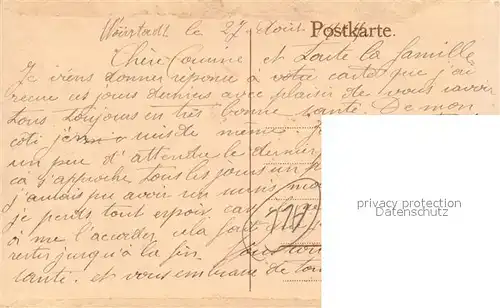 le 27 Août
Postkarte.
Chère Cousine et toute la famille
Je viens donner reponse à votre carte que j'ai
recue ces jours derniers avec plaisir de vous savoir
tous toujours en très bonne santé. De mon
coté je suis de même.
un peu d'attendre le dernier
ca s'approche tous les jours un p
j'aurais pu avoir un mois
je perds tout espoir car
à me l'accorder cela fait
rester jusqu'à la fin
santé. et vous embrasse de
privacy protection
Datenschutz